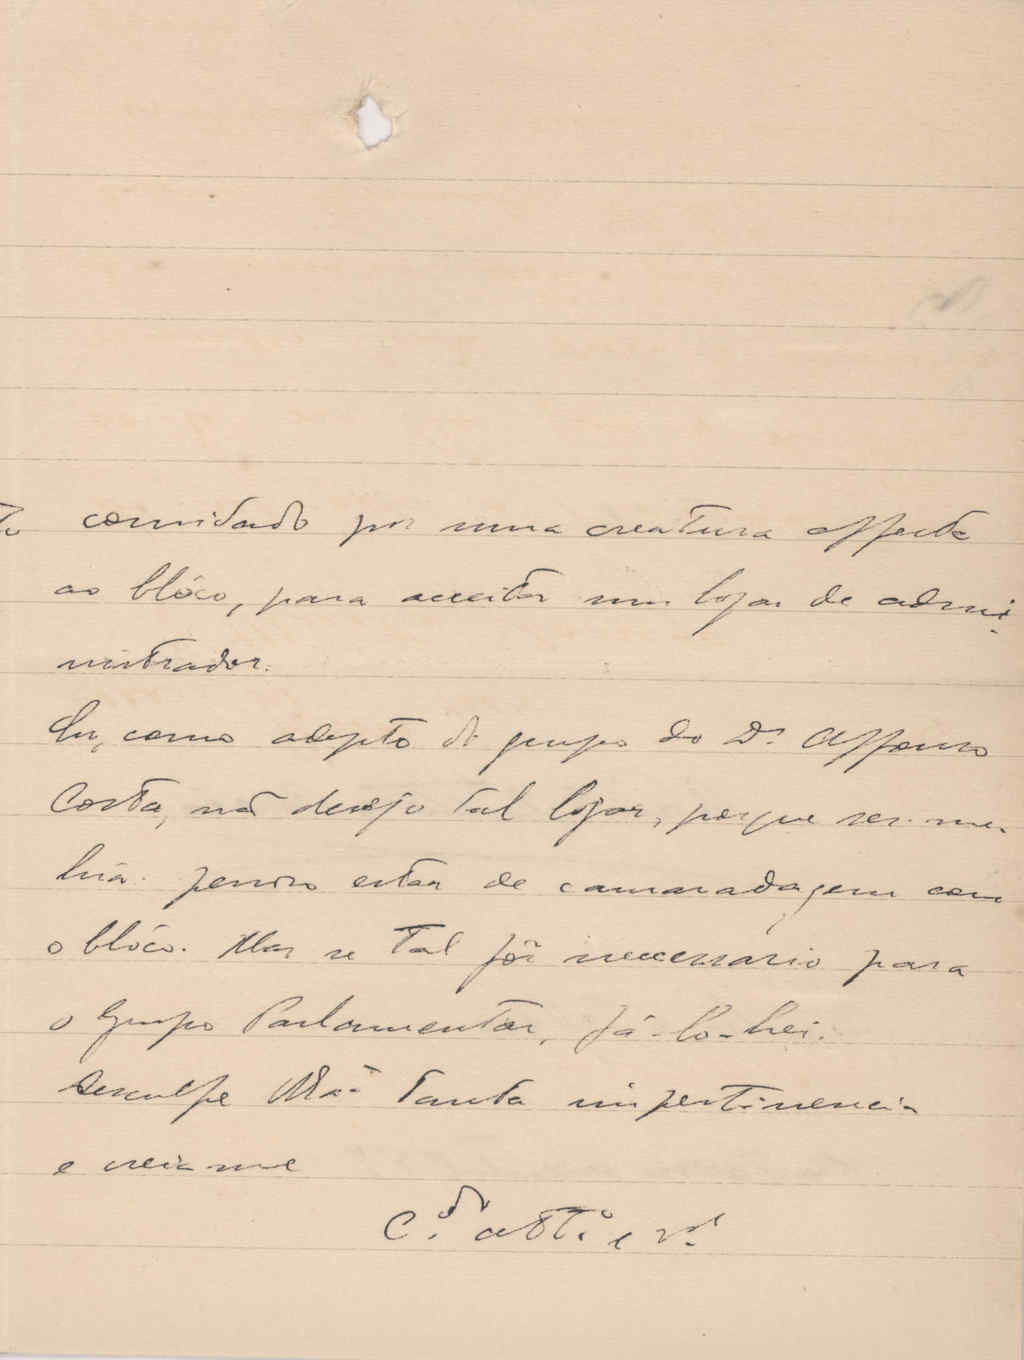 convidado por uma creatura affecta
ao blóco, para acceitar um logar de admi-
nistrador.
Eu, como adepto do grupo do Dr. Affonso
Costa, não desejo tal logar, porque
penoso estar de camaradagem com
o blóco. Mas se tal fôr necessario para
o Grupo Parlamentar, fá-lo-hei.
Desculpe tanta impertinencia
e creia-me
C.º att.º e